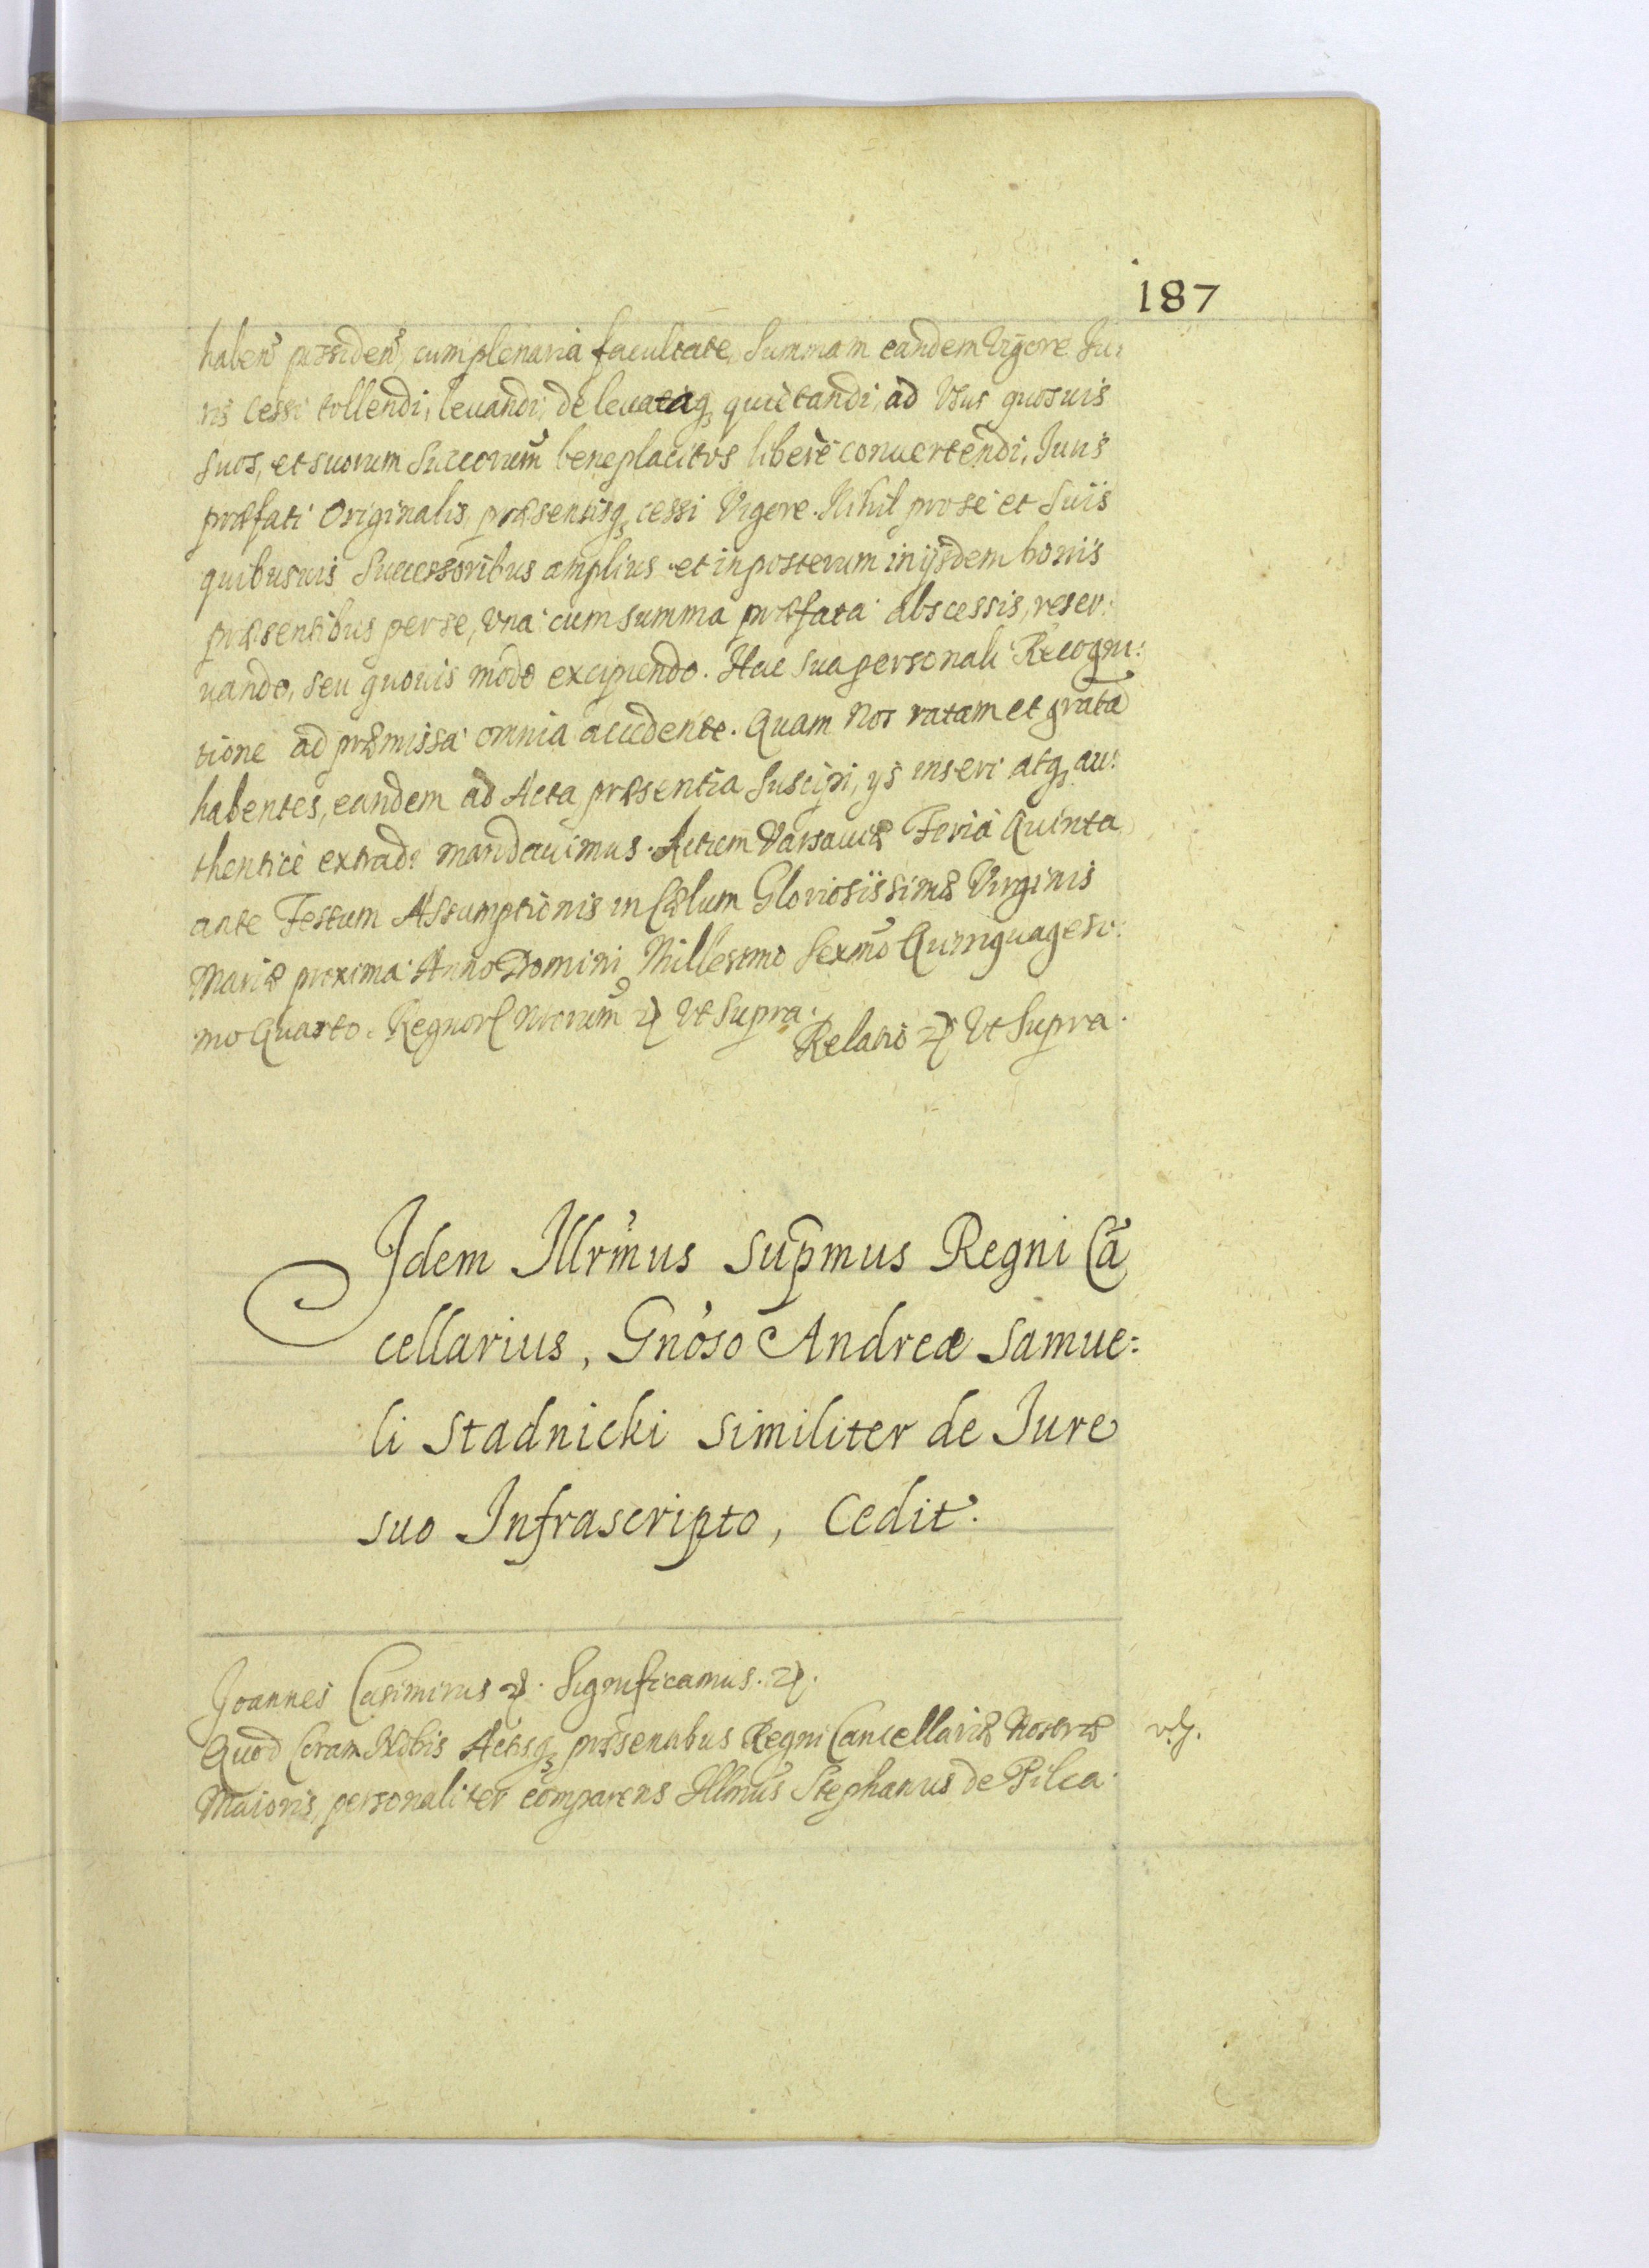 187
haben̄ possiden̄, cum plenaria facultate, Summam eandem Vigore Iu:
ris cessi tollendi, leuandi, de leuataq3 quietandi, ad Vsus quosuis
suos, et suorum Succorum̄ beneplacitos liberè conuertendi, Iuris
præfati Originalis, præsentisq3 cessi Vigore. Nihil pro se et suis
quibusuis Successoribus amplius et in posterum in ijsdem bonis
præsentibus per se, Vna cum summa præfata abscessis, reser:
uando, seu quouis modo excipiendo. Hac sua personali Recogni:
tione ad præmissa omnia accedente. Quam Nos ratam et gratā
habentes, eandem ad Acta præsentia Suscipi, ijs inseri atq3 au:
thenticè extradi mandauimus. Actum Varsauiæ Feria Quinta
ante Festum Assumptionis in Cælum Gloriosissimæ Virginis
Mariæ proxima Anno Domini Millesimo Sexmō Quinquagesi:
mo Quarto. Regnor Nrorum̄ Vt Supra.
Relatio Vt Supra.
Idem Illrm̄us Sup̄mus Regni Cā
cellarius, Gnōso Andreæ Samue:
li Stadnicki similiter de Iure
suo Infrascripto, Cedit.
Joannes Casimirus. Significamus.
Quod Coram Nobis Actisq3 præsentibus Regni Cancellariæ Nostræ
Maioris, personaliter comparens Illmūs Stephanus de Pilca